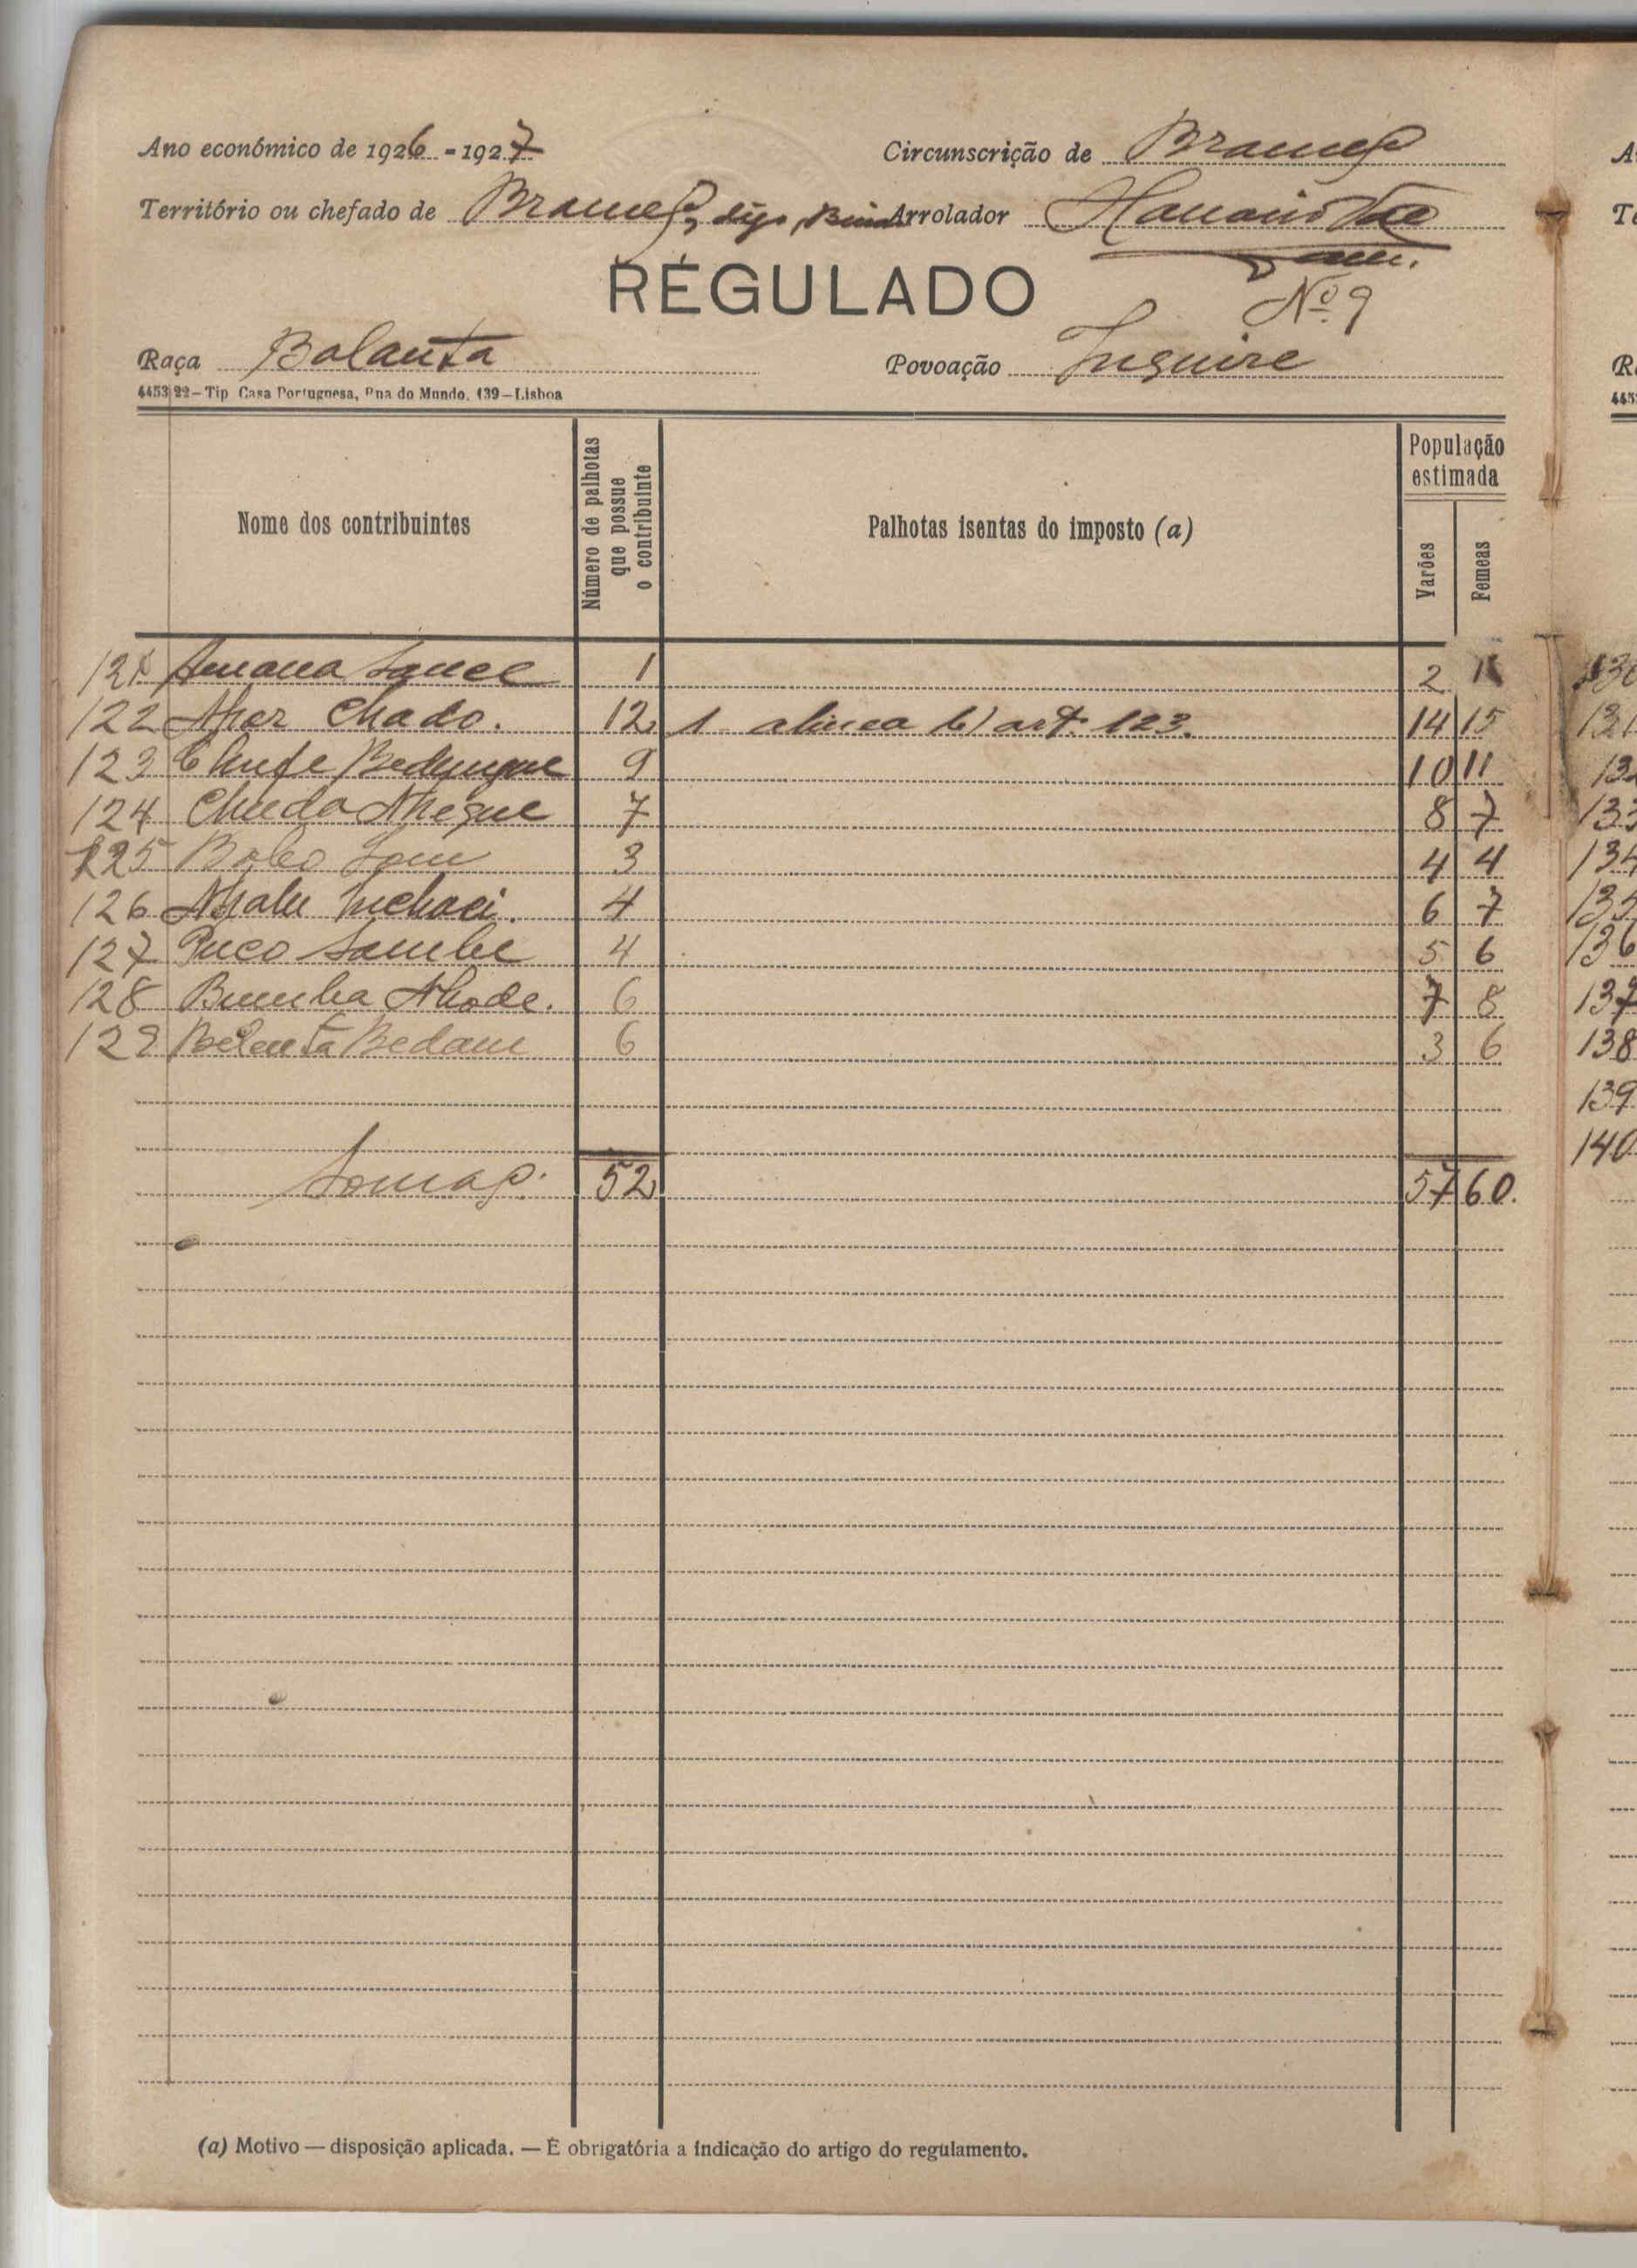 Ano económico de 1926 - 1927
Circunscrição de Brames
Território ou chefado de Brames, digo,
Arrolador
REGULADO
Nº 9
Raça Balanta
Povoação Inquire
4453 22 – Tip Casa Portuguesa, Rua do Mundo, 139 – Lisboa
Nome dos contribuintes
Número de palhotas que possue o contribuinte
Palhotas isentas do imposto (a)
População estimada
Varões
Femeas
121 1 2
122 Nhar Chado. 12 1 alinea b) art. 123. 14 15
123 Chufe 9 10 11
124 Nhegue 7 8 7
125 3 4 4
126 Nhalu 4 6 7
127 Puco Sambe 4 5 6
128 Bumba Nhode. 6 7 8
129 Bedam 6 3 6
Somas. 52 57 60.
(a) Motivo — disposição aplicada. — É obrigatória a indicação do artigo do regulamento.
131
133
134
135
136
137
138
139
140